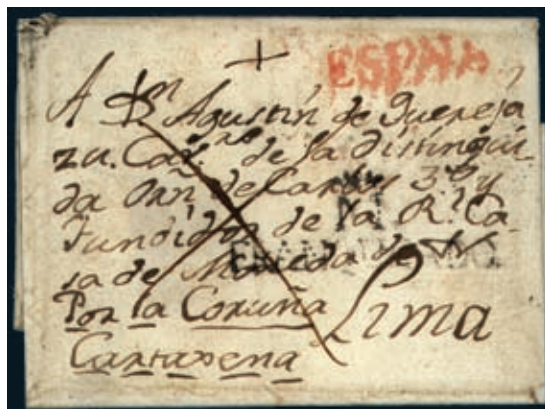 +
ESPÑA
A Dⁿ Agustín de Quereja
zu. Cavro de la distingui-
da Orñ de Carlos 3º y
Fundidor de la Rl Ca-
sa de Moneda de
Por la Coruña Lima
Cartagena